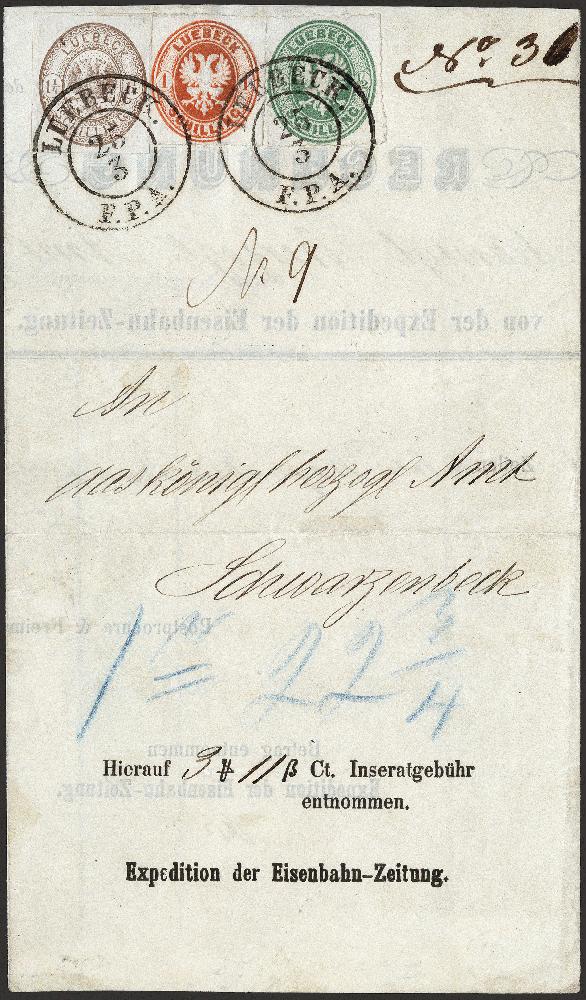 LUEBECK
SCHILLING
LUEBECK
SCHILLING
LUEBECK
SCHILLING
LUEBECK.
25
3
F.P.A.
LUEBECK.
25
3
F.P.A.
No 9
An
das königl herzogl Amt
Schwarzenbeck
22 3/4
Hierauf 3 ₶ 11 β Ct. Inseratgebühr
entnommen.
Expedition der Eisenbahn-Zeitung.
RECHNUNG
von der Expedition der Eisenbahn-Zeitung.
Betrag entnommen
Expedition der Eisenbahn-Zeitung.